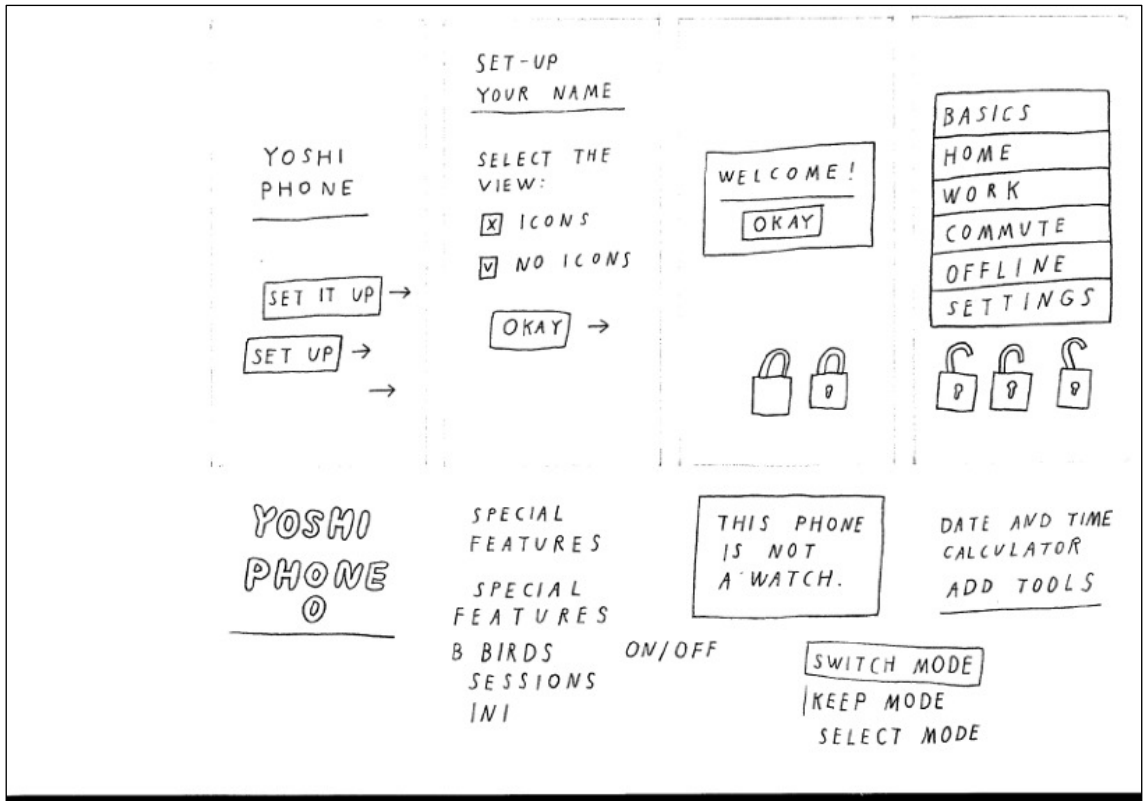 YOSHI
PHONE
SET IT UP →
SET UP →
→
SET-UP
YOUR NAME
SELECT THE
VIEW:
X ICONS
V NO ICONS
OKAY →
WELCOME!
OKAY
BASICS
HOME
WORK
COMMUTE
OFFLINE
SETTINGS
YOSHI
PHONE
O
SPECIAL
FEATURES
SPECIAL
FEATURES
B BIRDS ON/OFF
SESSIONS
INI
THIS PHONE
IS NOT
A WATCH.
DATE AND TIME
CALCULATOR
ADD TOOLS
SWITCH MODE
KEEP MODE
SELECT MODE